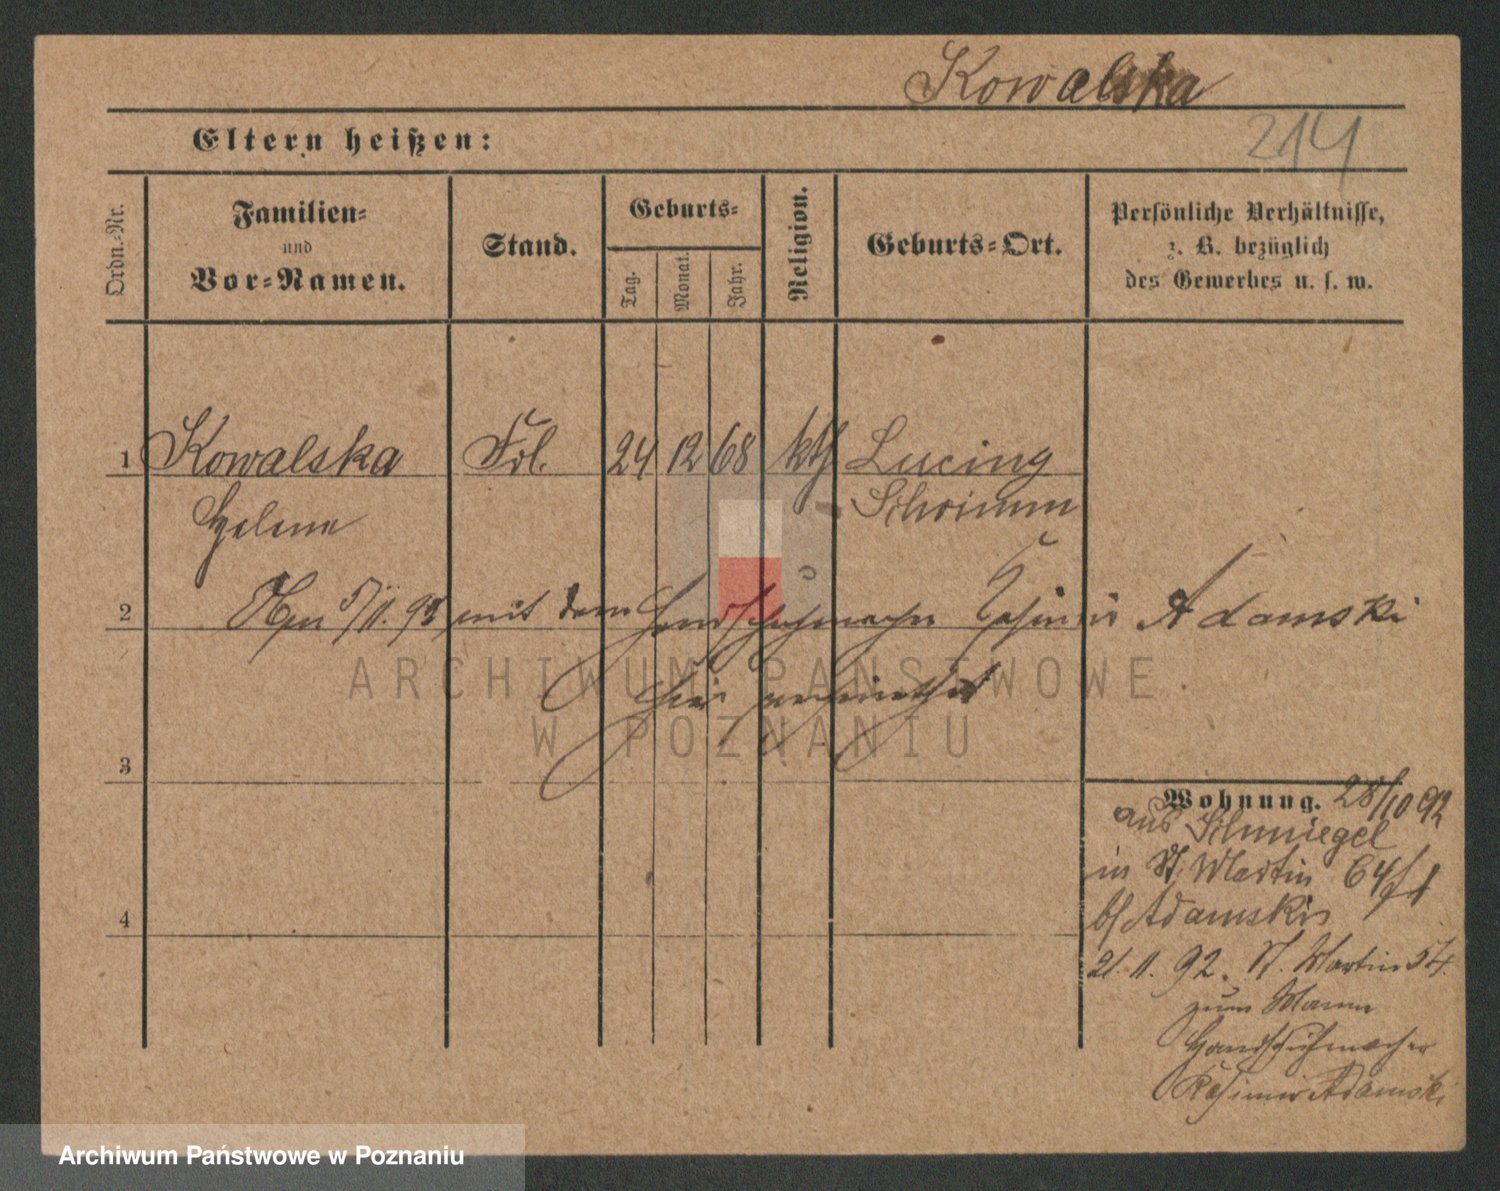 Kowalska
Eltern heißen:
214
Ordn.-Nr.
Familien-
und
Vor-Namen.
Stand.
Geburts-
Tag.
Monat.
Jahr.
Religion.
Geburts-Ort.
Persönliche Verhältnisse,
z. B. bezüglich
des Gewerbes u. s. w.
1 Kowalska Frl. 24 12 68 kth Lucing
Helene Schrimm
2 5/11. 92 mit dem Handschuhmacher Casimir Adamski
hier verheirathet
ARCHIWUM PAŃSTWOWE
W POZNANIU
3
Wohnung. 28/10 92
aus Schmiegel
in St. Martin 64
b/ Adamski
4
21. 11. 92. St. Martin 57.
zum Mann
Handschuhmacher
Kasimir Adamski
Archiwum Państwowe w Poznaniu